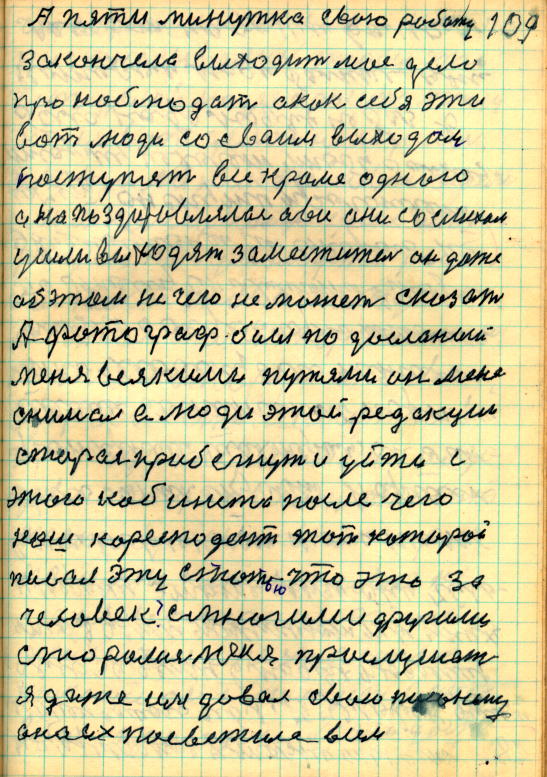 А пяти минутка свою работу 109
закончела выходит мое дело
про наблюдат а как себя эти
вот люди со сваим выходам
поступят все кроме одного
а все они со смехам
ушли выходят заместител он даже
об этом не чего не может сказат
А фотограф был по досланый
меня всякими путями он мене
снимал а люди этой редакции
старая прибегнут и уйти с
этого кабинета после чего
наш коресподент тот которой
писал эту статью что это за
человек? с многими другими
старолися меня прослушат
я даже им довал свою
она их посветила всем